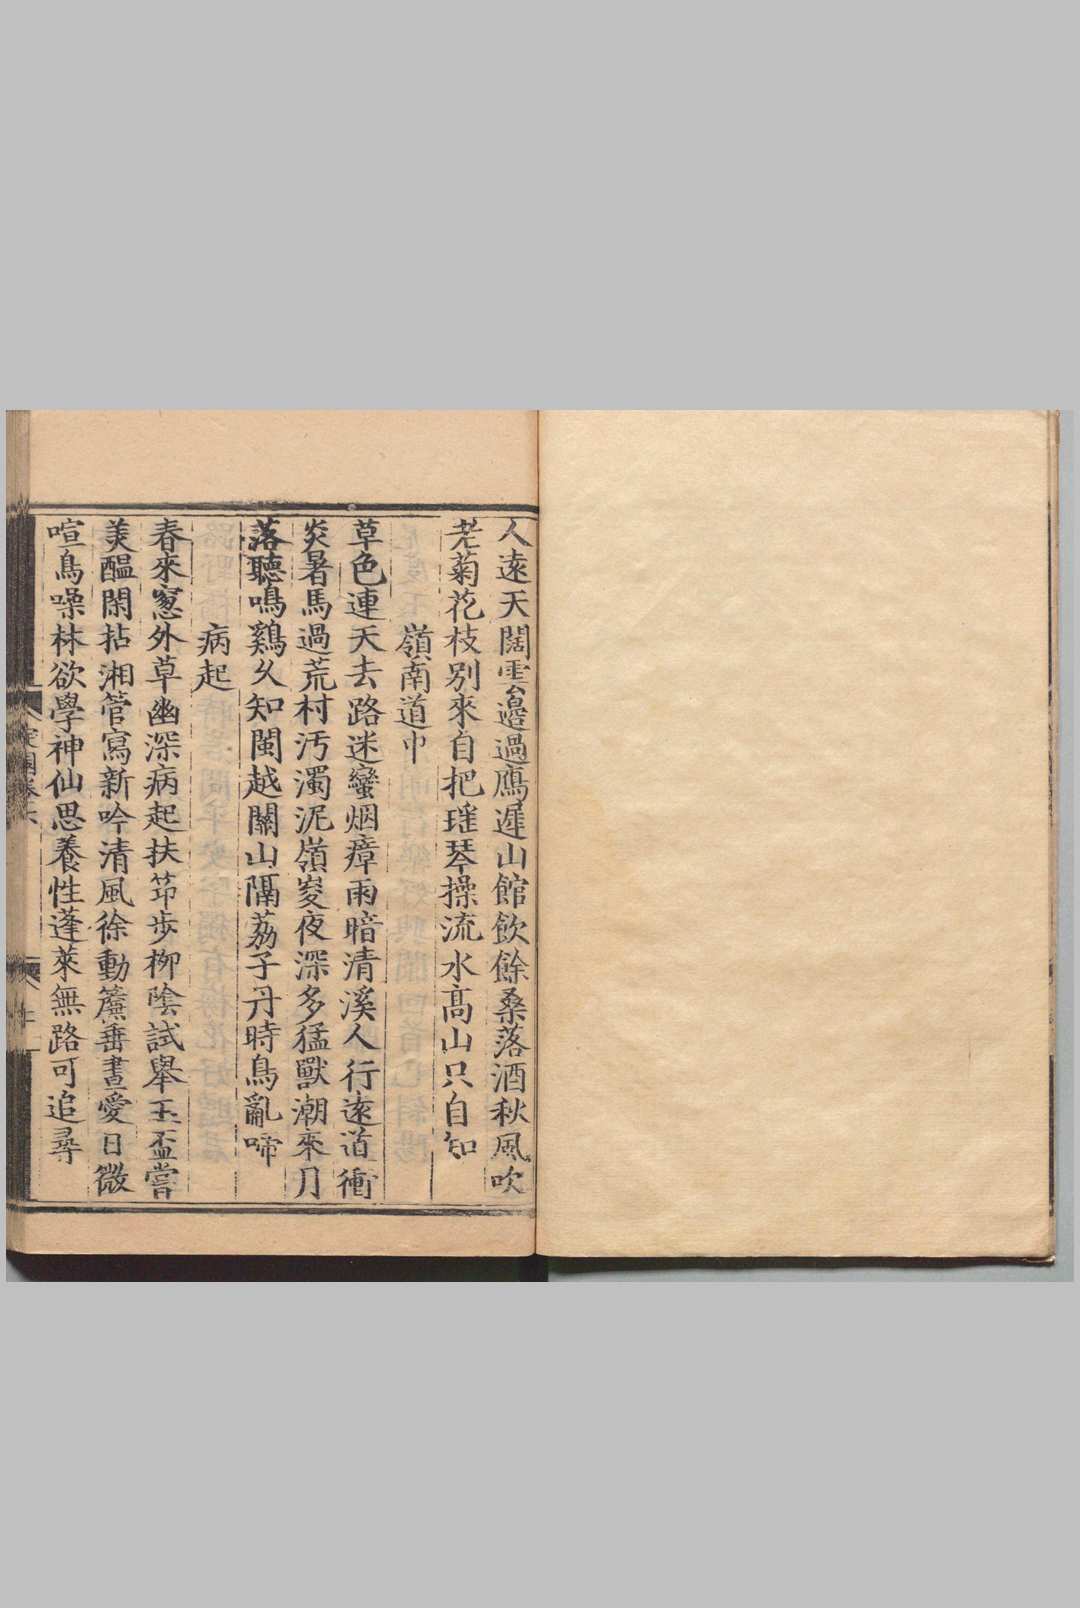 人遠天闊雲邊過鴈遲山館飲餘桑落酒秋風吹
老菊花枝別來自把瑤琴操流水高山只自知
嶺南道中
草色連天去路迷蠻烟瘴雨暗清溪人行遠道衝
炎暑馬過荒村汚濁泥嶺峻夜深多猛獸潮來月
落聽鳴鷄乆知閩越關山隔荔子丹時鳥亂啼
病起
春來窓外草幽深病起扶笻步柳陰試舉玉盃嘗
美醞閑拈湘管寫新吟清風徐動簾垂晝愛日微
喧鳥噪林欲學神仙思養性蓬萊無路可追尋